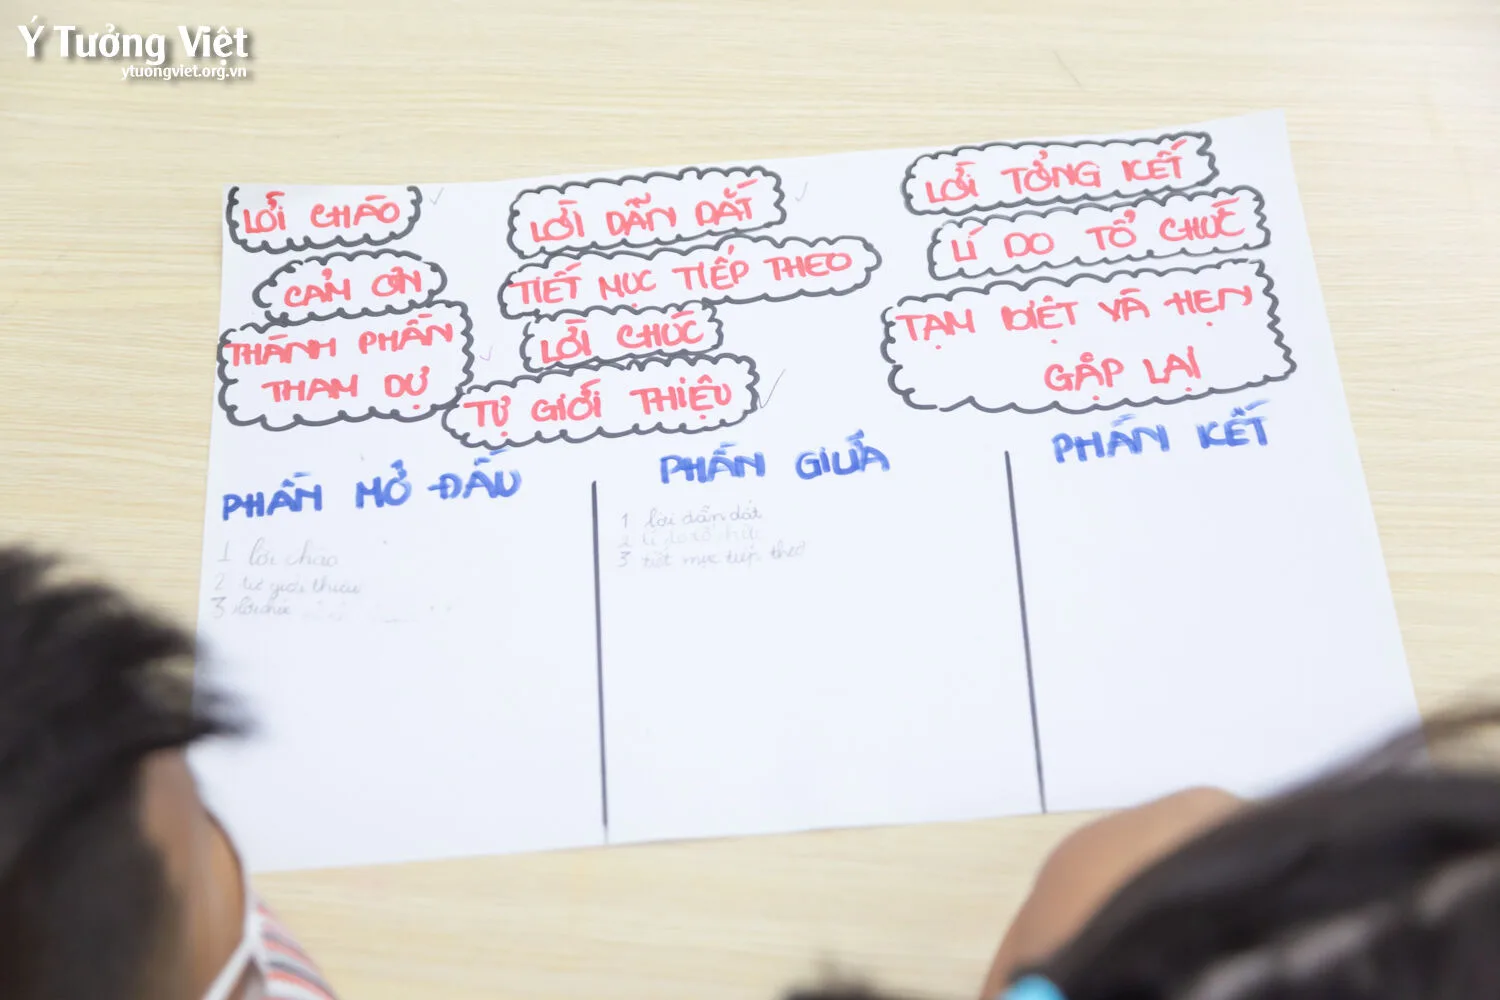 Ý Tưởng Việt
ytuongviet.org.vn
LỜI CHÀO
CẢM ƠN
THÀNH PHẦN
THAM DỰ
LỜI DẪN DẮT
TIẾT MỤC TIẾP THEO
LỜI CHÚC
TỰ GIỚI THIỆU
LỜI TỔNG KẾT
LÍ DO TỔ CHỨC
TẠM BIỆT VÀ HẸN
GẶP LẠI
PHẦN MỞ ĐẦU
1 lời chào
2 tự giới thiệu
3
PHẦN GIỮA
1 lời dẫn dắt
2 lí do tổ chức
3 tiết mục tiếp theo
PHẦN KẾT